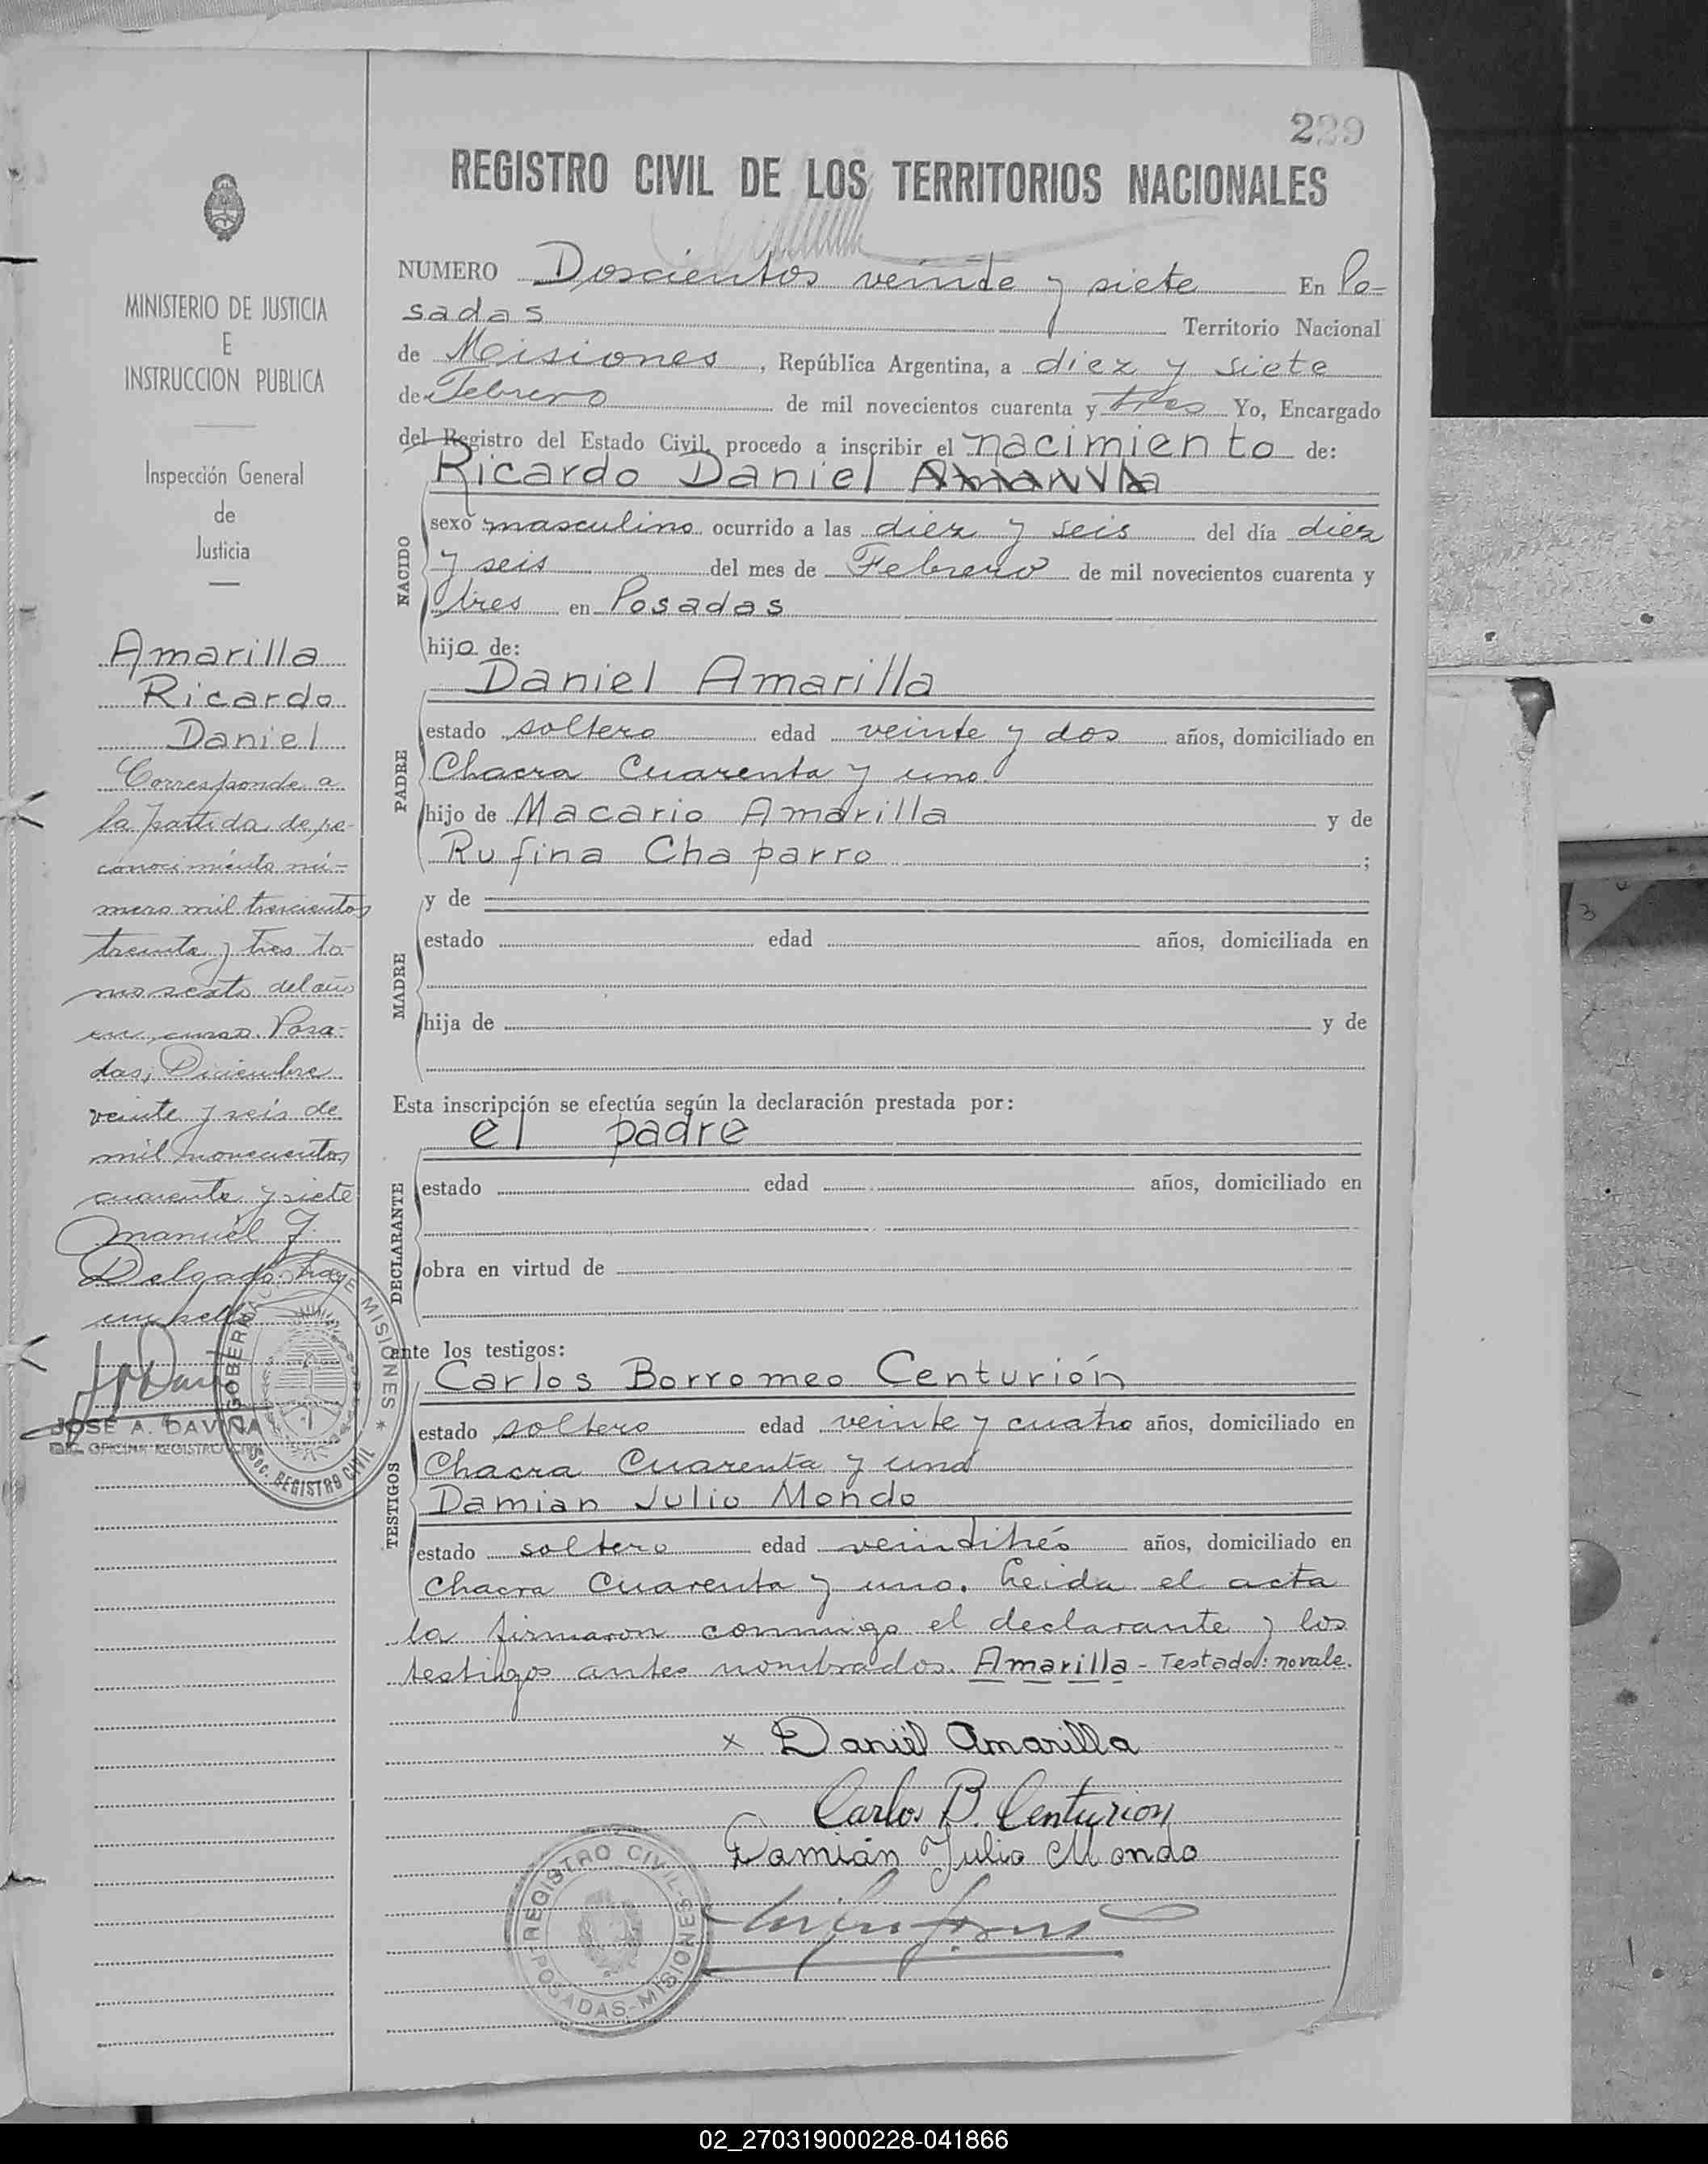 229
REGISTRO CIVIL DE LOS TERRITORIOS NACIONALES
MINISTERIO DE JUSTICIA
E
INSTRUCCION PUBLICA
Inspección General
de
Justicia
Amarilla
Ricardo
Daniel
Corresponde a
la partida de re-
conocimiento nú-
mero mil trescientos
treinta y tres to-
mo sexto del año
en curso. Posa-
das, Diciembre
veinte y seis de
mil novecientos
cuarenta y siete
Manuel J.
Delgado. hay
un sello
JOSE A. DAVIÑA
OFICINA REGISTRO CIVIL
GOBERNACION DE MISIONES * Sec. REGISTRO CIVIL
NUMERO Doscientos veinte y siete En Po-
sadas Territorio Nacional
de Misiones, República Argentina, a diez y siete
de Febrero de mil novecientos cuarenta y tres Yo, Encargado
del Registro del Estado Civil, procedo a inscribir el nacimiento de:
Ricardo Daniel Amarilla
NACIDO
sexo masculino ocurrido a las diez y seis del día diez
y seis del mes de Febrero de mil novecientos cuarenta y
tres en Posadas
hijo de:
Daniel Amarilla
PADRE
estado soltero edad veinte y dos años, domiciliado en
Chacra Cuarenta y uno
hijo de Macario Amarilla y de
Rufina Chaparro ;
MADRE
y de
estado edad años, domiciliada en
hija de y de
Esta inscripción se efectúa según la declaración prestada por:
el padre
DECLARANTE
estado edad años, domiciliado en
obra en virtud de
ante los testigos:
Carlos Borromeo Centurión
TESTIGOS
estado soltero edad veinte y cuatro años, domiciliado en
Chacra Cuarenta y uno
Damian Julio Mondo
estado soltero edad veintitrés años, domiciliado en
Chacra Cuarenta y uno. Leida el acta
la firmaron conmigo el declarante y los
testigos antes nombrados. Amarilla - Testado: no vale.
x Daniel Amarilla
Carlos B. Centurion
Damián Julio Mondo
REGISTRO CIVIL-SIONES
POSADAS-MISIONES
02_270319000228-041866